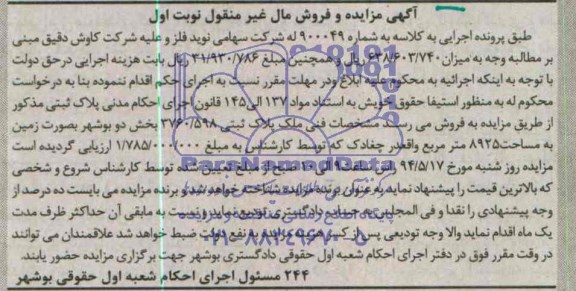 آگهی مزایده و فروش مال غیر منقول نوبت اول
طبق پرونده اجرایی به کلاسه به شماره ۹۰۰۰۴۹ له شرکت سهامی نوید فلز و علیه شرکت کاوش دقیق مبنی
بر مطالبه وجه به میزان ۶۳۸/۶۰۳/۷۴۰ ریال و همچنین مبلغ ۳۱/۹۳۰/۷۸۶ ریال بابت هزینه اجرایی در حق دولت
با توجه به اینکه اجرائیه به محکوم علیه ابلاغ و در مهلت مقرر نسبت به اجرای حکم اقدام ننموده بنا به درخواست
محکوم له به منظور استیفا حقوق خویش به استناد مواد ۱۳۷ الی ۱۴۵ قانون اجرای احکام مدنی پلاک ثبتی مذکور
از طریق مزایده به فروش می رسد مشخصات فنی ملک پلاک ثبتی ۳۷۶۰/۵۹۸ بخش دو بوشهر بصورت زمین
به مساحت ۸۹۲۵ متر مربع واقع در چغادک که توسط کارشناس به مبلغ ۱/۷۸۵/۰۰۰/۰۰۰ ارزیابی گردیده است
مزایده روز شنبه مورخ ۹۴/۵/۱۷ راس ساعت ۹ الی ۱۰ صبح از مبلغ تعیین شده توسط کارشناس شروع و شخصی
که بالاترین قیمت را پیشنهاد نماید به عنوان برنده مزایده شناخته خواهد شد و برنده مزایده می بایست ده درصد از
وجه پیشنهادی را نقدا و فی المجلس به حساب دادگستری تودیع نماید و نسبت به مابقی آن حداکثر ظرف مدت
یک ماه اقدام نماید والا وجه تودیعی پس از کسر هزینه مزایده به نفع دولت ضبط خواهد شد علاقمندان می توانند
در وقت مقرر فوق در دفتر اجرای احکام شعبه اول حقوقی دادگستری بوشهر جهت برگزاری مزایده حضور یابند.
۲۴۴ مسئول اجرای احکام شعبه اول حقوقی بوشهر
ParsNamadData
۰۲۱-۸۸۳۴۹۶۷۰-۵